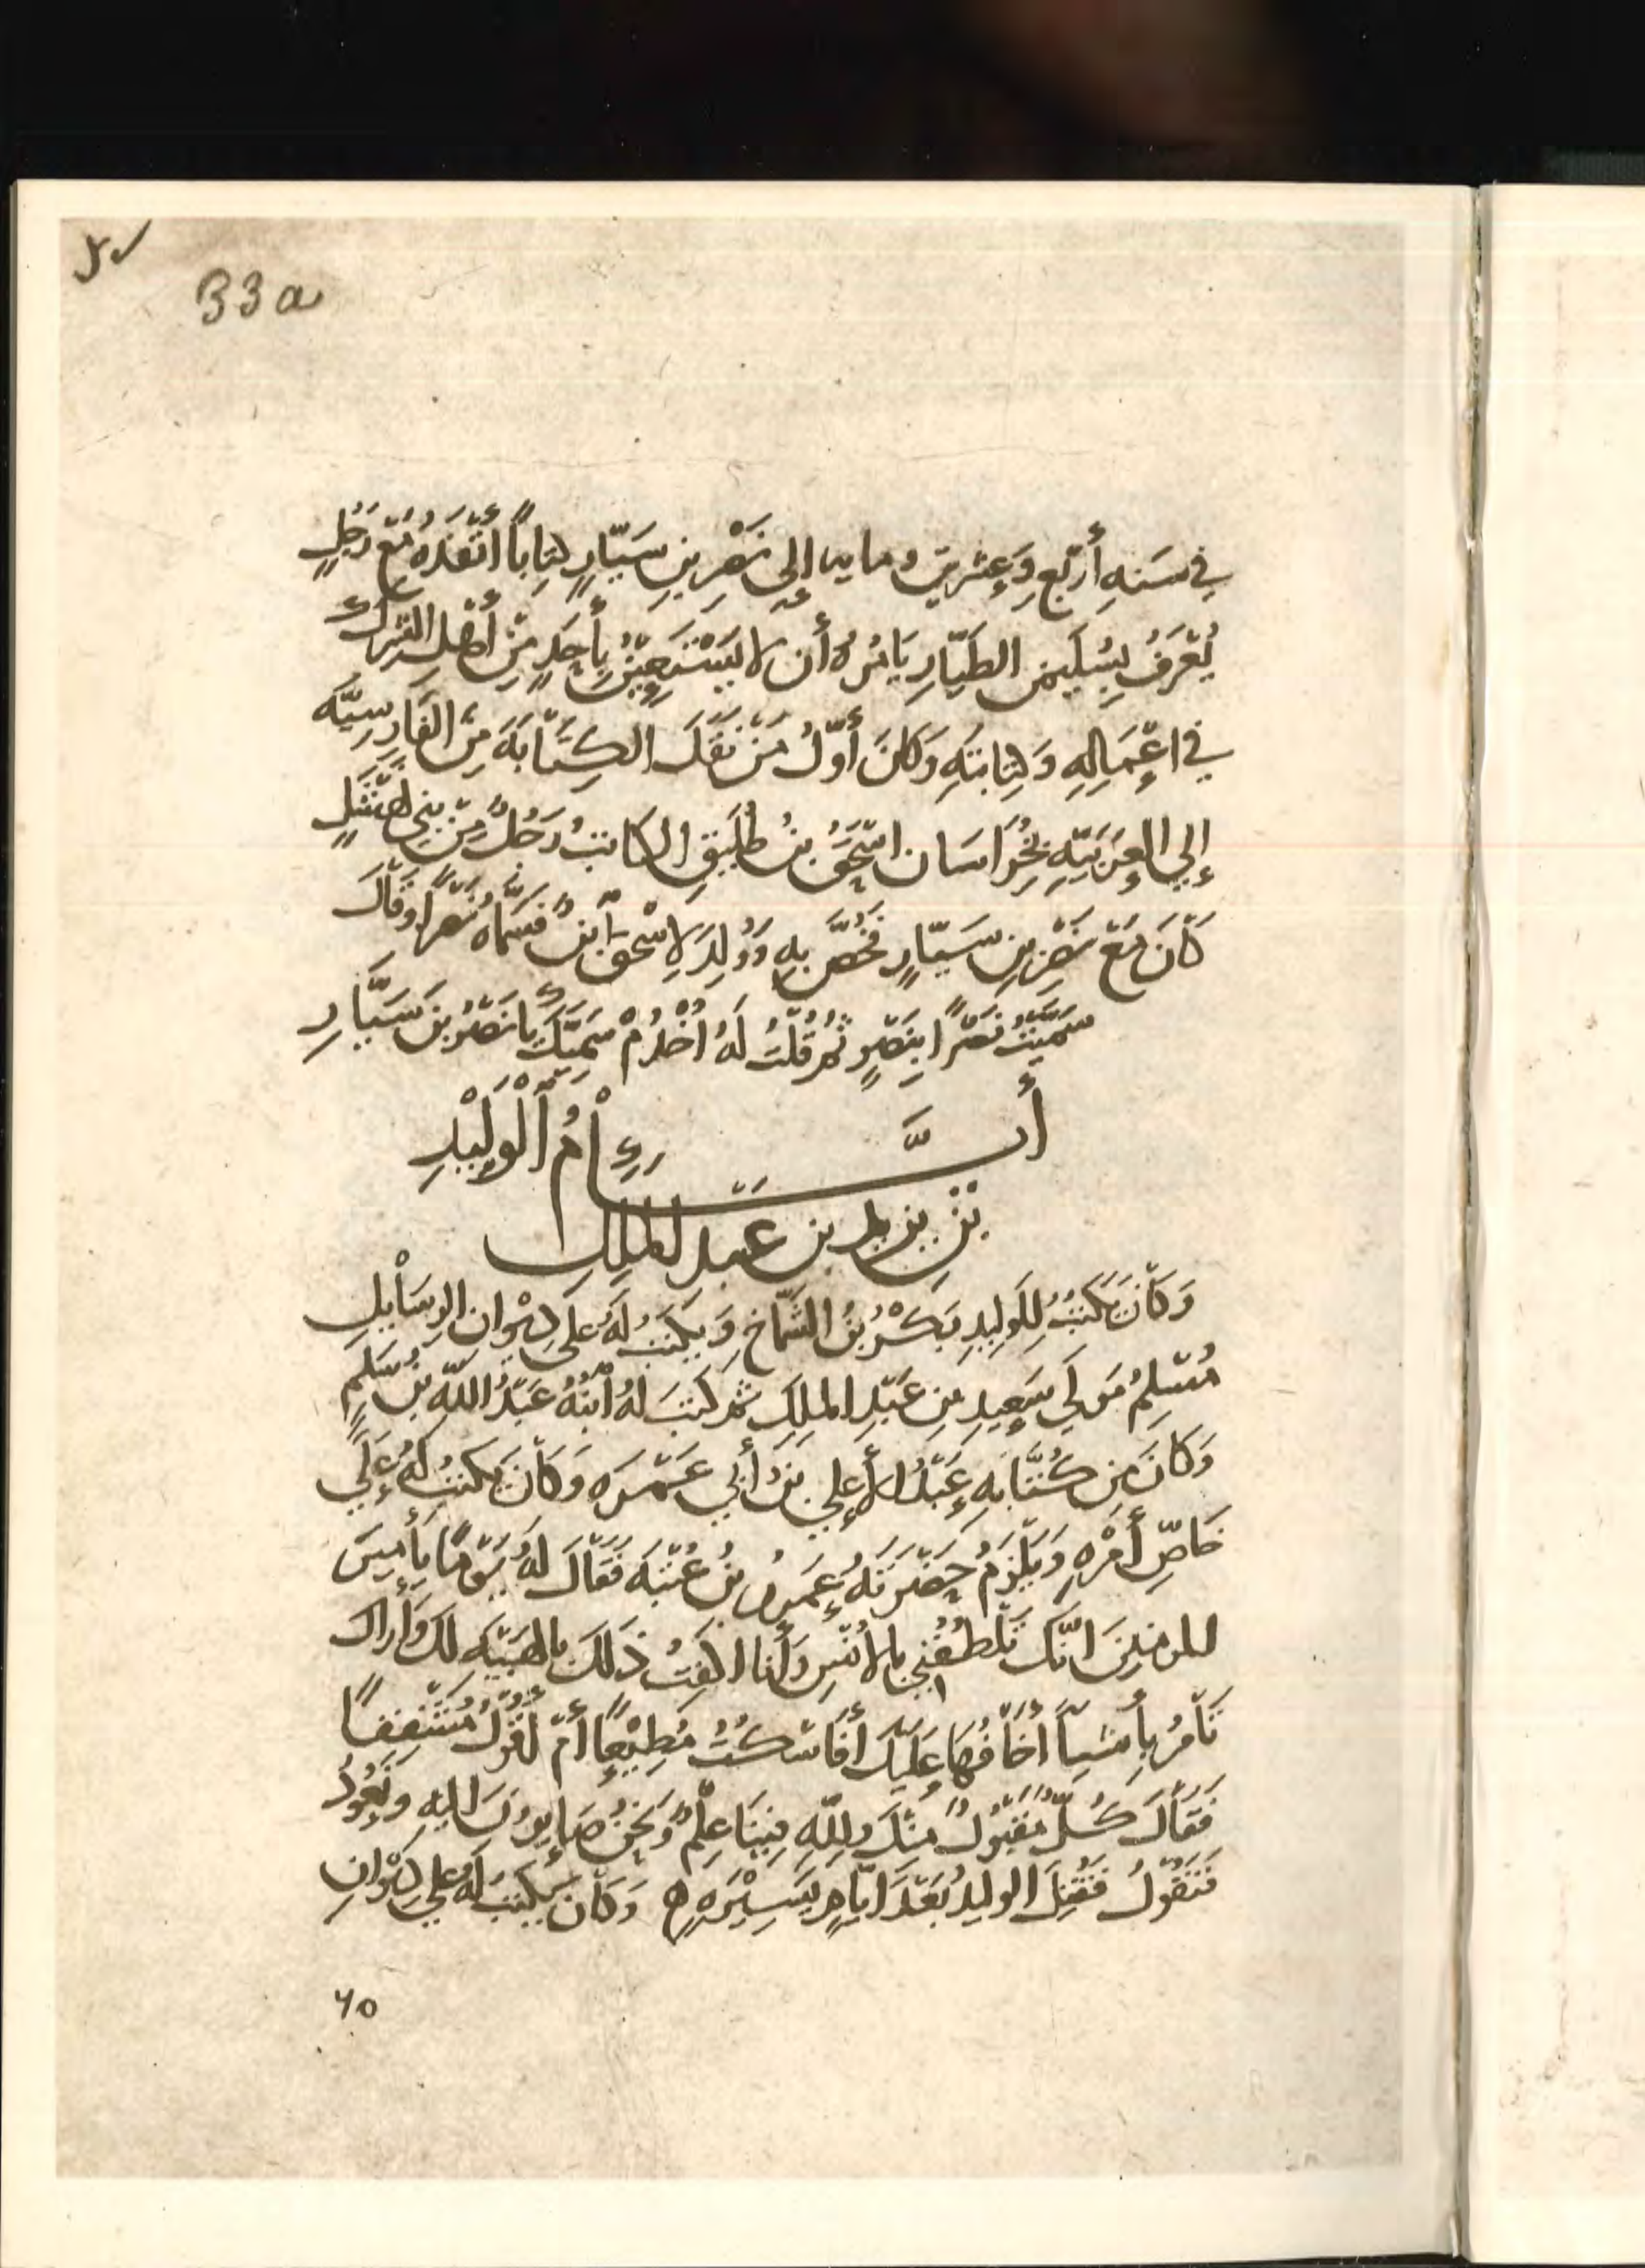 33a
في سَنَهِ أَرْبَعٍ وَعِشْرِينَ ومايه إلى نَصْرِ بنِ سَيّارٍ كِتابًا أَنْفَذَهُ مَعَ رَجُلٍ
يُعْرَفُ بِسُلَيمنَ الطَيّارِ يَامُرُهُ أَن لا يَسْتَعِيْنُ بِأَحَدٍ مِنْ أَهْلِ الشِرْكِ
في اعْمَالِهِ وَكِتابتهِ وَكانَ أَوّلُ مَنْ نَقَلَ الكِتَابَهَ مِنَ الفَارِسِيَّه
إِلي العَرَبيّهِ بِخُرَاسَان اسْحَقُ بنُ طُلَيقٍ الكاتبُ رَجُلٌ مِنْ بني نَهْشَلٍ
كَانَ مَعَ نَصْرِ بنِ سَيّارٍ فَخُصَّ بِهِ وَوُلِدَ لاِسْحَقَ ابْنٌ فَسَمَّاهُ نَصْرًا وَقَالَ
سَمَّيْتُ نَصْرًا بِنَصْرٍ ثُمَّ قُلْتُ لَهُ اُخْدُمْ سَمِيَّكَ يا نَصْرُ بنَ سَيَّارِ
أَيَّــــامُ الْوَلِيْدِ
بْنِ يزيد بن عبدِ المَلِكِ
وَكَانَ يَكْتُبُ لِلوَلِيدِ بَكْرُ بنُ الشَّمّاخِ وَيكتبُ لَهُ عَلى دِيْوانِ الرسَايلِ
مُسْلِمٌ مَولَي سَعِيدِ بنِ عَبْدِ الملِكِ ثم كَتبَ لَهُ ابْنُهُ عَبْدُ اللهِ بنُ سَلِمٍ
وَكانَ مِن كُتَّابهِ عَبْدُ الأَعلي بنُ أَبي عَمْرَه وَكَانَ يَكتبُ لَهُ عَلَي
خَاصِّ أَمْرِهِ وَيَلْزَمُ حَضْرَتَهُ عَمرُو بنُ عُتْبَه فَقَالَ لَهُ يَوْمًا يَأَمِيرَ
المومنينَ انَّكَ تُنْطِقُني بالأُنْسِ وَأَنا اكفتُ ذَلكَ بالهَيْبَه لَكَ وَأَراكَ
تَأْمُرُ بِأَشيآَ اخَافُهَا عَلَيْكَ أَفَاسْكُتُ مُطِيْعًا أَمْ أَقُوْلُ مُشْفِقًا
فَقَالَ كُلٌّ مَقْبُولٌ مِنْكَ ولِلّهِ فِيْنَا عِلْمٌ وَنَحْنُ صَايِرُونَ اليهِ وَنَعُودُ
فَنَقُوْلُ فَقُتِلَ الوليدُ بَعْدَ ايّامٍ يَسِيْرَهٍ ه وَكَانَ يَكتبُ لَهُ علي دِيْوانِ
٦٥